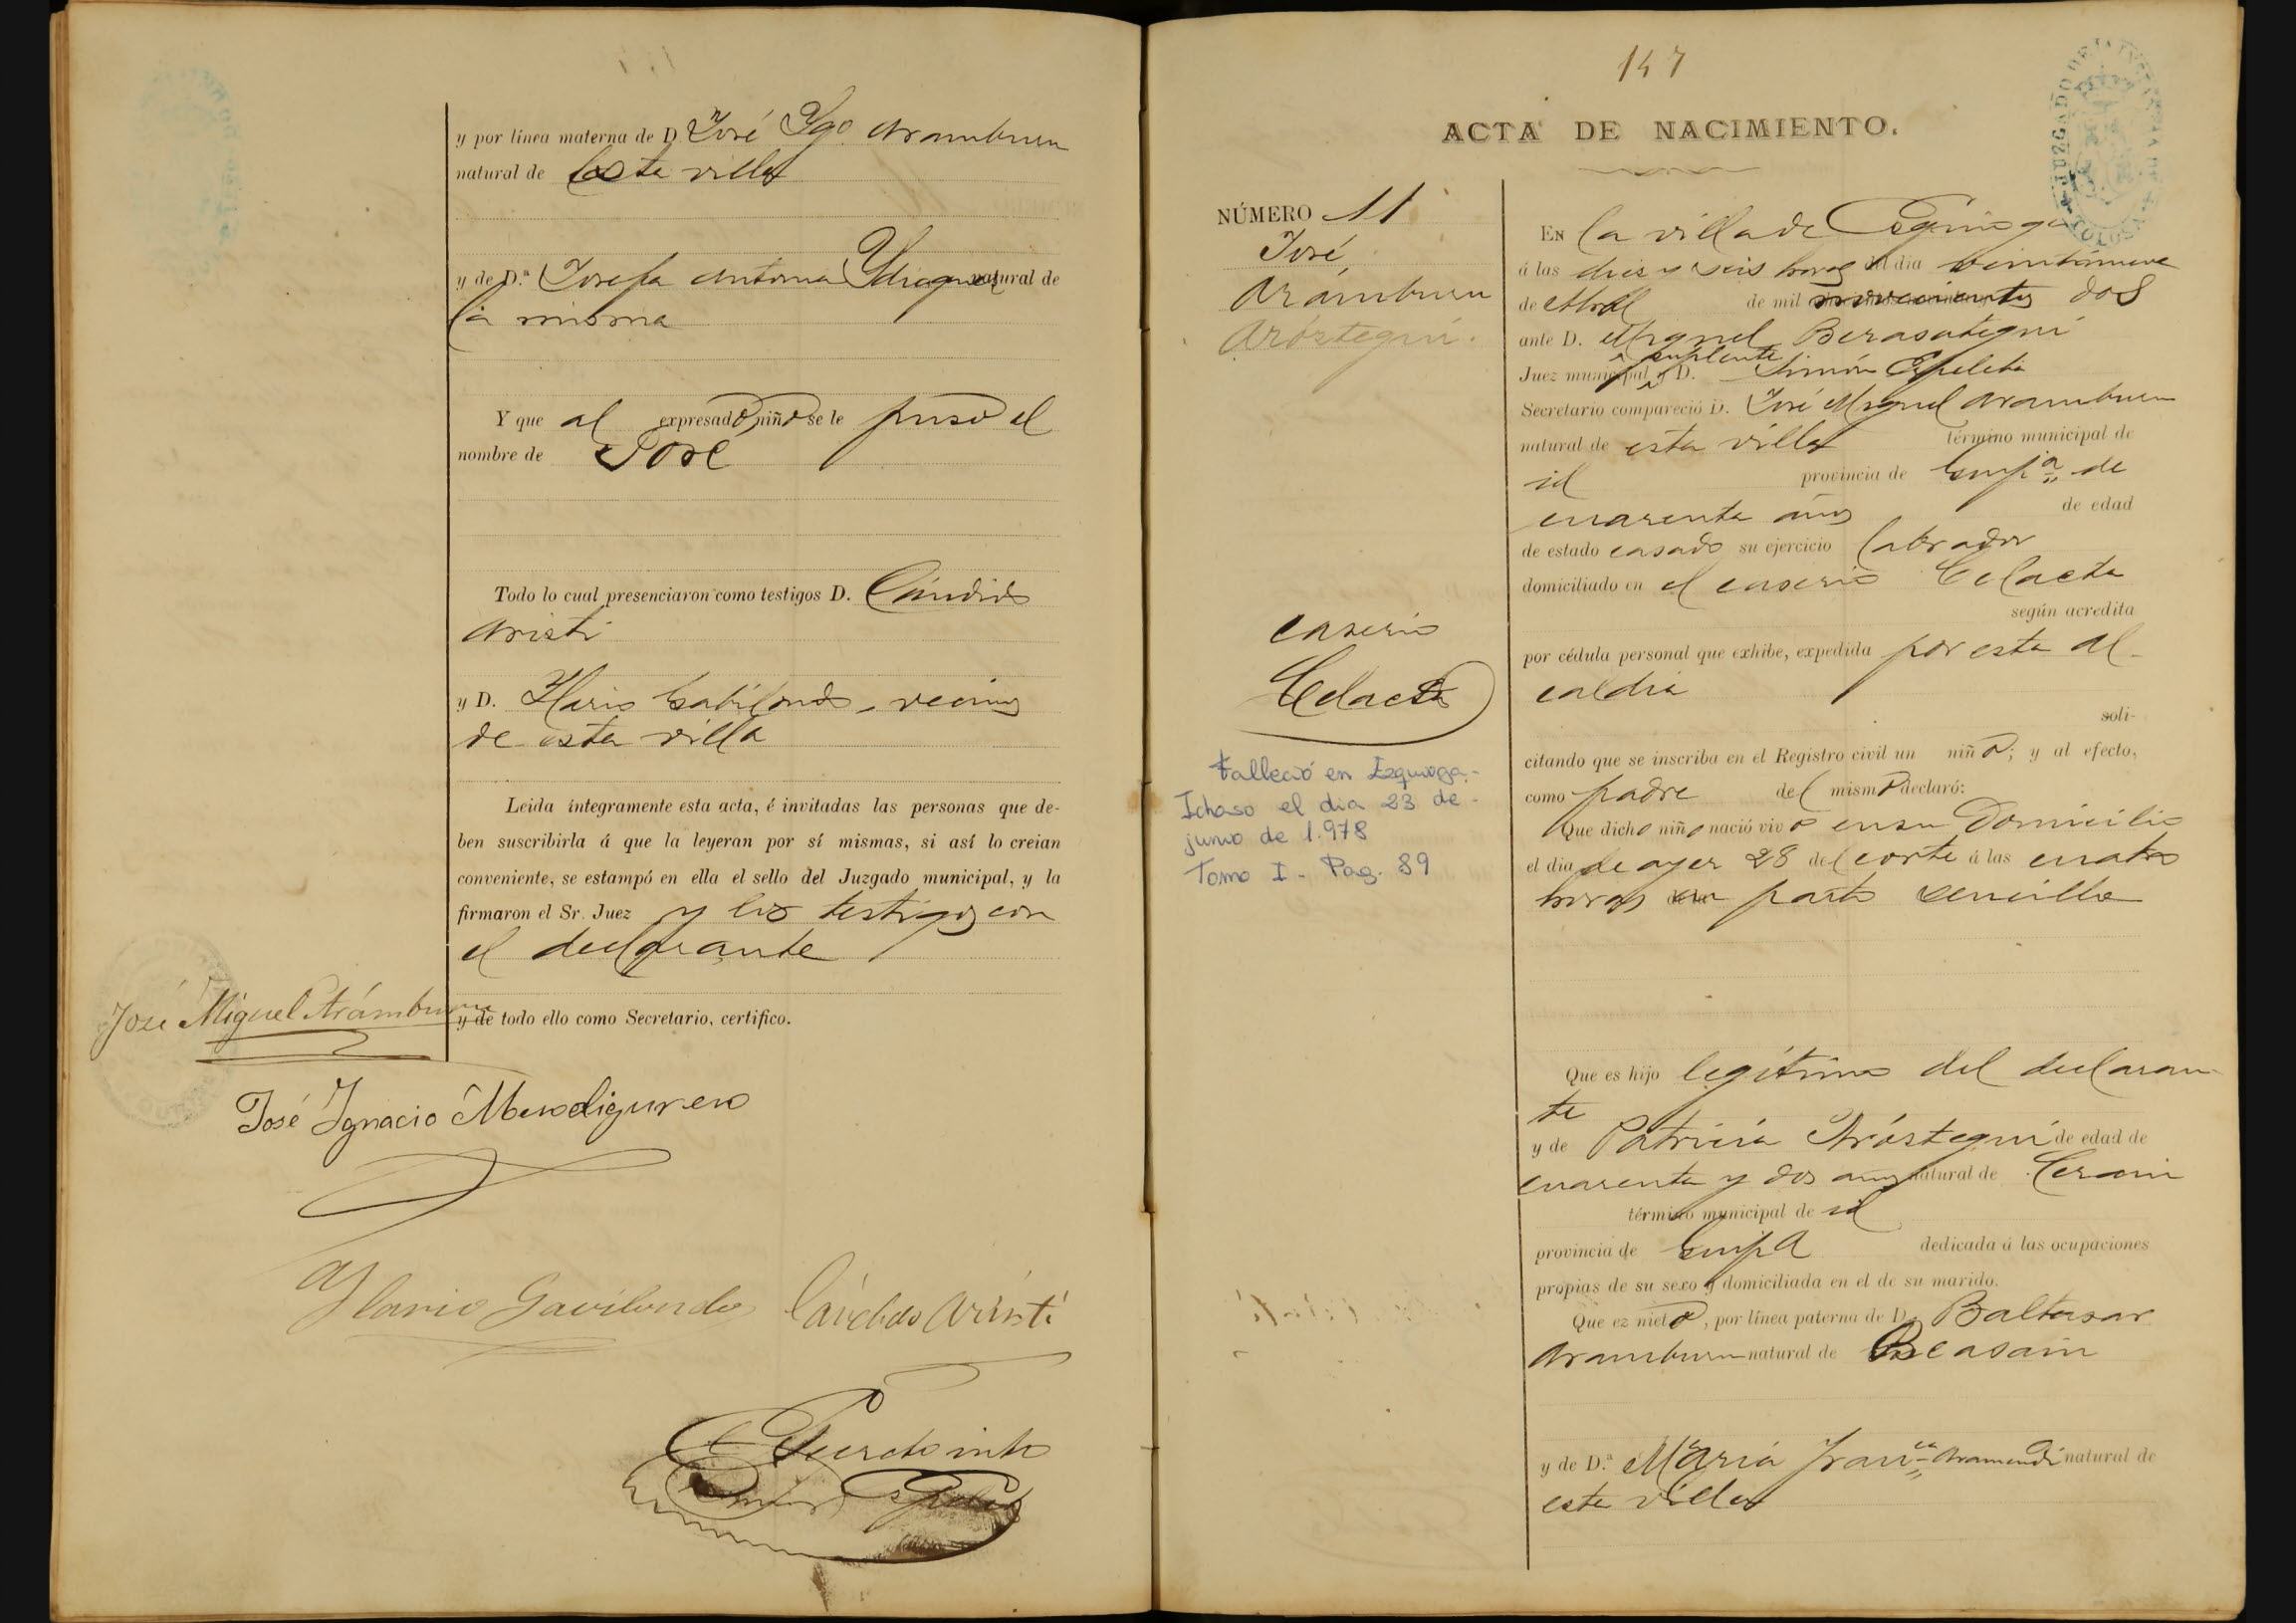 y por línea materna de D. José Ygo. Aramburu
natural de esta villa
y de D.ª Josefa Antonia natural de
la misma
Y que al expresado niño se le puso el
nombre de José
Todo lo cual presenciaron como testigos D. Cándido
Aristi
y D. Ylario Gabilondo, vecinos
de esta villa
Leida íntegramente esta acta, é invitadas las personas que de-
ben suscribirla á que la leyeran por sí mismas, si así lo creian
conveniente, se estampó en ella el sello del Juzgado municipal, y la
firmaron el Sr. Juez y los testigos con
el declarante
y de todo ello como Secretario, certifico.
José Miguel Arámburu
José Ignacio Mendiguren
Ylario Gavilondo Cándido Aristi
El Secretario into
Simón Espeleta
147
ACTA DE NACIMIENTO.
NÚMERO 11
José
Arámburu
Aróstegui.
caserio
Celaeta
Falleció en Ezquioga-
Ichaso el dia 23 de
junio de 1.978
Tomo I - Pag. 89
JUZGADO DE TOLOSA
EN la villa de Ezquioga
á las diez y seis horas del dia veintinueve
de Abril de mil novecientos dos
ante D. Miguel Berasategui
Juez municipal suplente y D. Simón Espeleta
Secretario compareció D. José Miguel Aramburu
natural de esta villa término municipal de
id provincia de Guip.ª de
cuarenta años de edad
de estado casado su ejercicio labrador
domiciliado en el caserio Celaeta
según acredita
por cédula personal que exhibe, expedida por esta Al-
caldia
soli-
citando que se inscriba en el Registro civil un niño; y al efecto,
como padre del mismo declaró:
Que dicho niño nació vivo en su domicilio
el dia de ayer 28 del corte á las cuatro
horas en parto sencillo
Que es hijo legítimo del declaran-
te
y de Patricia Aróstegui de edad de
cuarenta y dos años natural de Cerain
término municipal de id
provincia de Guipa dedicada á las ocupaciones
propias de su sexo y domiciliada en el de su marido.
Que ez nieto, por línea paterna de D. Baltasar
Aramburu natural de Beasain
y de D.ª María Franca Aramendi natural de
esta villa